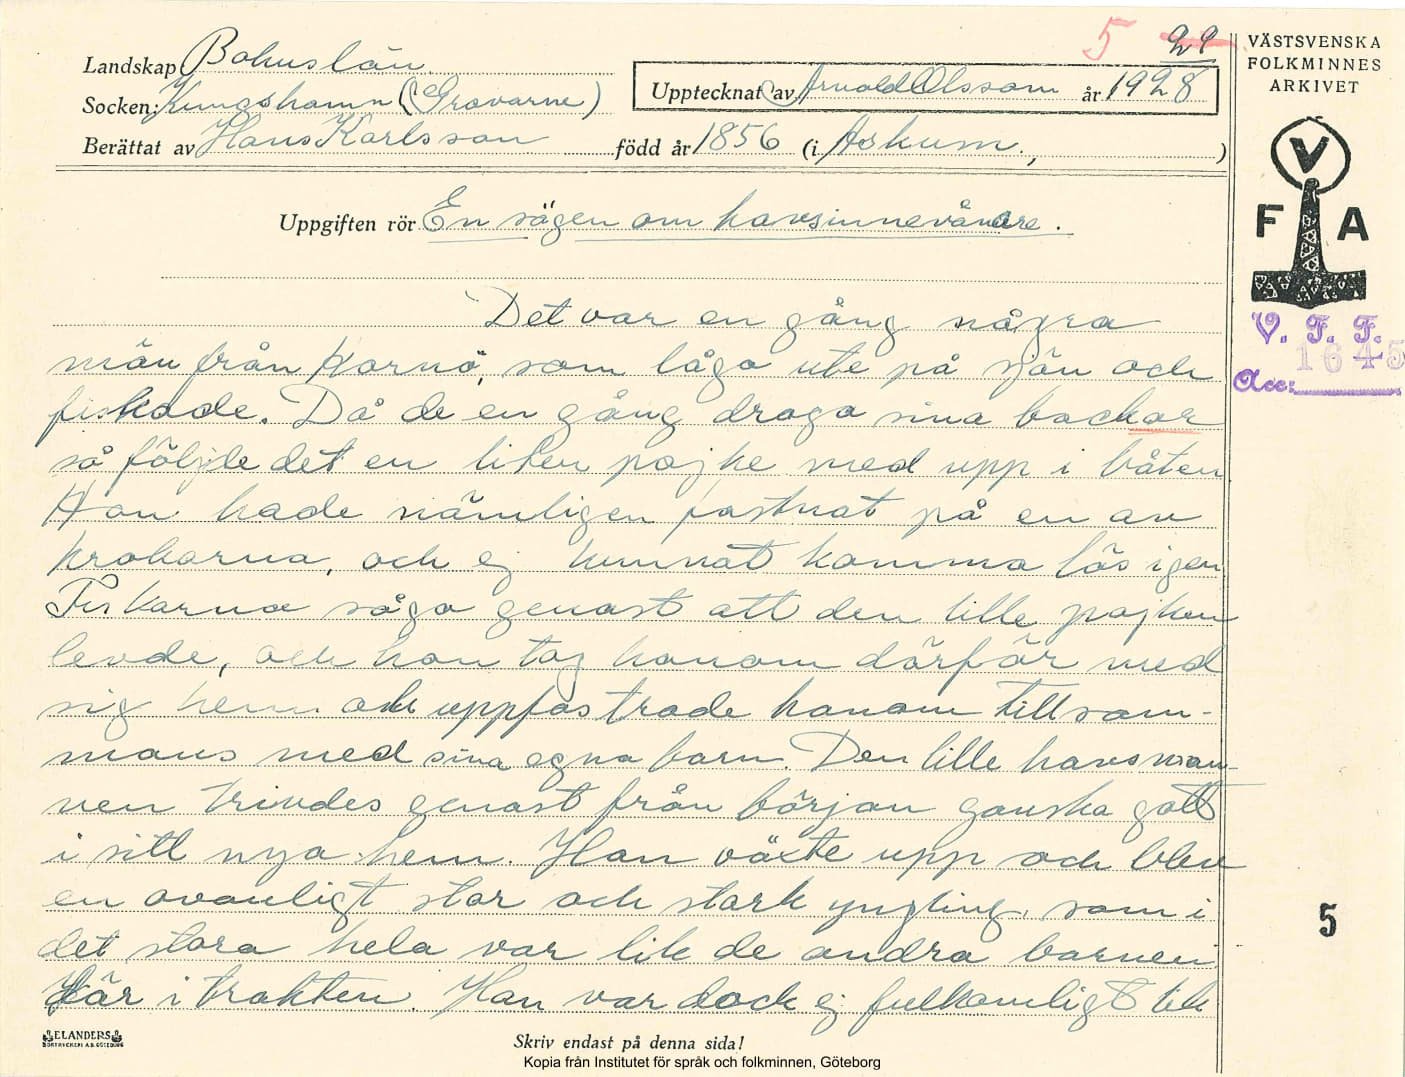 5 29
Landskap Bohuslän
Socken: Kungshamn (Gravarne)
Upptecknat av Arnold Olsson år 1928
Berättat av Hans Karlsson född år 1856 (i Askum.,)
Uppgiften rör En sägen om havsinnevånare.
Det var en gång några
män från Karnö, som lågo ute på sjön och
fiskade. Då de en gång drogo sina backor
så följde det en liten pojke med upp i båten
Han hade nämligen fastnat på en av
krokarna, och ej kunnat komma lös igen
Fiskarna sågo genast att den lille pojken
levde, och han tog honom därför med
sig hem och uppfostrade honom tillsam-
mans med sina egna barn. Den lille havsman-
nen trivdes genast från början ganska gott
i sitt nya hem. Han växte upp och blev
en ovanligt stor och stark yngling, som i
det stora hela var lik de andra barnen
där i trakten. Han var dock ej fullkomligt lik
ELANDERS
BOKTRYCKERI A.B. GÖTEBORG
Skriv endast på denna sida!
Kopia från Institutet för språk och folkminnen, Göteborg
VÄSTSVENSKA
FOLKMINNES
ARKIVET
V
F A
V. F. F.
1645
Acc:
5